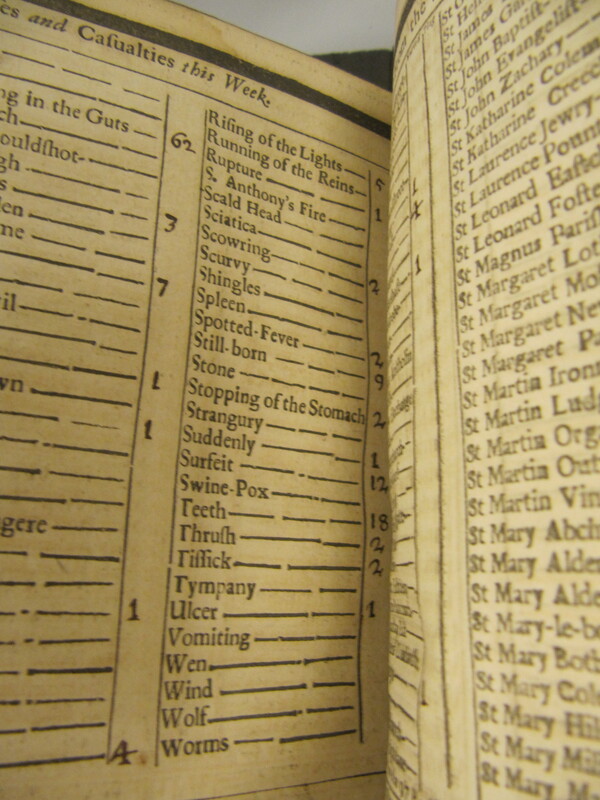 es and Caſualties this Week.
ng in the Guts 62
ch
ouldſhot-
gh
s
len 3
me
7
vil
1
wn
1
gere
1
4
Riſing of the Lights 5
Running of the Reins
Rupture 1
S. Anthony's Fire
Scald Head
Sciatica
Scowring
Scurvy 2
Shingles
Spleen
Spotted-Fever 2
Still-born 9
Stone
Stopping of the Stomach 2
Strangury
Suddenly 1
Surfeit 12
Swine-Pox
Teeth 18
Thruſh 2
Tiſſick 2
Tympany
Ulcer 1
Vomiting
Wen
Wind
Wolf
Worms
1
1
St James Gar
St John Baptiſt
St John Evangeliſt
St John Zachary
St Katharine Colem
St Katharine Creech
St Laurence Jewry
St Laurence Pount
St Leonard Eaſtch
St Leonard Foſte
St Magnus Pariſh
St Margaret Lot
St Margaret Moſ
St Margaret New
St Margaret Pa
St Martin Ironm
St Martin Ludg
St Martin Orga
St Martin Out
St Martin Vin
St Mary Abch
St Mary Alder
St Mary Alde
St Mary-le-bo
St Mary Both
St Mary Cole
St Mary Hill
St Mary Mil
St Mary M